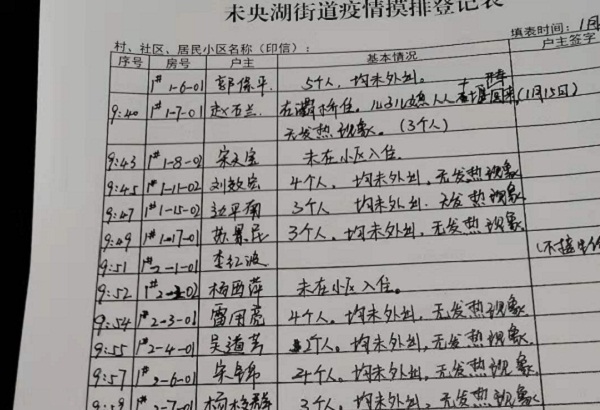 未央湖街道疫情摸排登记表
填表时间：1月
村、社区、居民小区名称（印信）：
序号 房号 户主 基本情况 户主签字
1#1-6-01 郭保平 5个人，均未外出。
9:40 1#1-7-01 赵石兰 在灞桥住。儿子儿媳 人 回来（1月15日）
无发热现象。（3个人）
9:43 1#1-8-02 宋文宝 未在小区入住。
9:45 1#1-11-02 刘效宏 4个人，均未外出，无发热现象
9:47 1#1-15-02 边平南 3个人，均未外出，无发热现象
9:49 1#1-17-01 3个人，均未外出，无发热现象。
9:51 1#2-1-01 李红波 （不接电话
9:52 1#2-2-02 杨西萍 未在小区入住。
9:54 1#2-3-01 雷用虎 4个人，均未外出，无发热现象
9:55 1#2-4-01 吴道芳 2个人，均未外出，无发热现象。
9:57 1#2-6-01 宋 4个人，均未外出，无发热现象。
1#2-7-01 杨 群 3个人，均未外出，无发热现象